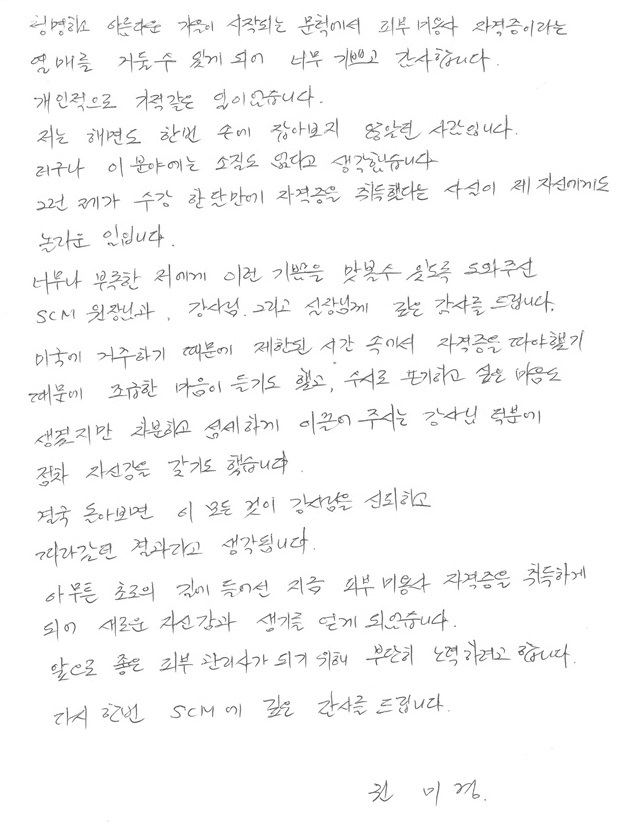 청명하고 아름다운 가을이 시작되는 문턱에서 피부 미용사 자격증이라는
열매를 거둘수 있게 되어 너무 기쁘고 감사합니다.
개인적으로 기적같은 일이었습니다.
저는 해면도 한번 손에 잡아보지 않았던 사람입니다.
더구나 이 분야에는 소질도 없다고 생각했습니다
그런 제가 수강 한달만에 자격증을 취득했다는 사실이 제 자신에게도
놀라운 일입니다.
너무나 부족한 저에게 이런 기쁨을 맛볼수 있도록 도와주신
SCM 원장님과, 강사님, 그리고 실장님께 깊은 감사를 드립니다.
미국에 거주하기 때문에 제한된 시간 속에서 자격증을 따야했기
때문에 조급한 마음이 들기도 했고, 수시로 포기하고 싶은 마음도
생겼지만 차분하고 섬세하게 이끌어 주시는 강사님 덕분에
점차 자신감을 갖기도 했습니다.
결국 돌아보면 이 모든 것이 강사님을 신뢰하고
따라갔던 결과라고 생각됩니다.
아무튼 초로의 길에 들어선 지금 피부 미용사 자격증을 취득하게
되어 새로운 자신감과 생기를 얻게 되었습니다.
앞으로 좋은 피부 관리사가 되기 위해 부단히 노력하려고 합니다.
다시 한번 SCM에 깊은 감사를 드립니다.
권 미 경.